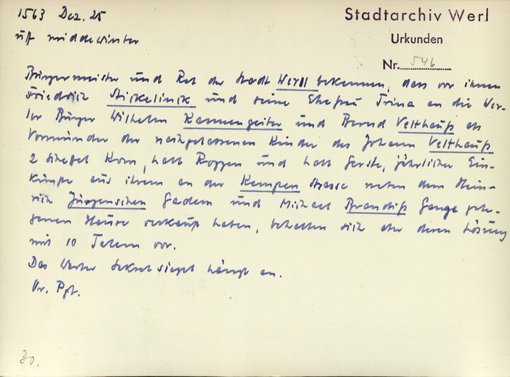 1563 Dez. 25
uff middewinter
Stadtarchiv Werl
Urkunden
Nr. 546
Bürgermeister und Rat der Stadt Werll bekennen, dass vor ihnen
Friedrich Sickelinck und seine Ehefrau Trina an die Wer-
ler Bürger Wilhelm Kannengeiter und Bernd Velthauß als
Vormünder der nachgelassenen Kinder des Johann Velthauß
2 Scheffel Korn, halb Roggen und halb Gerste, jährlicher Ein-
künfte aus ihrem an der Kempen Strasse neben dem Hein-
rich Gadem und Michael Brandiß Gange gele-
genen Hause verkauft haben, behalten sich aber deren Lösung
mit 10 Talern vor.
Das Werler Sekretsiegel hängt an.
Or. Pgt.
30.